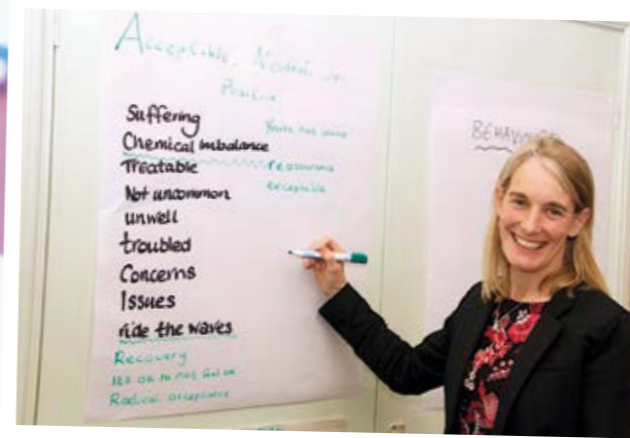 Acceptable, Neutral or
Positive
Suffering
Chemical imbalance
Treatable
Not uncommon
unwell
troubled
Concerns
Issues
ride the waves
Recovery
Its ok to not feel ok
Radical acceptance
You're not alone
reassurance
acceptable
BEHAVIOUR